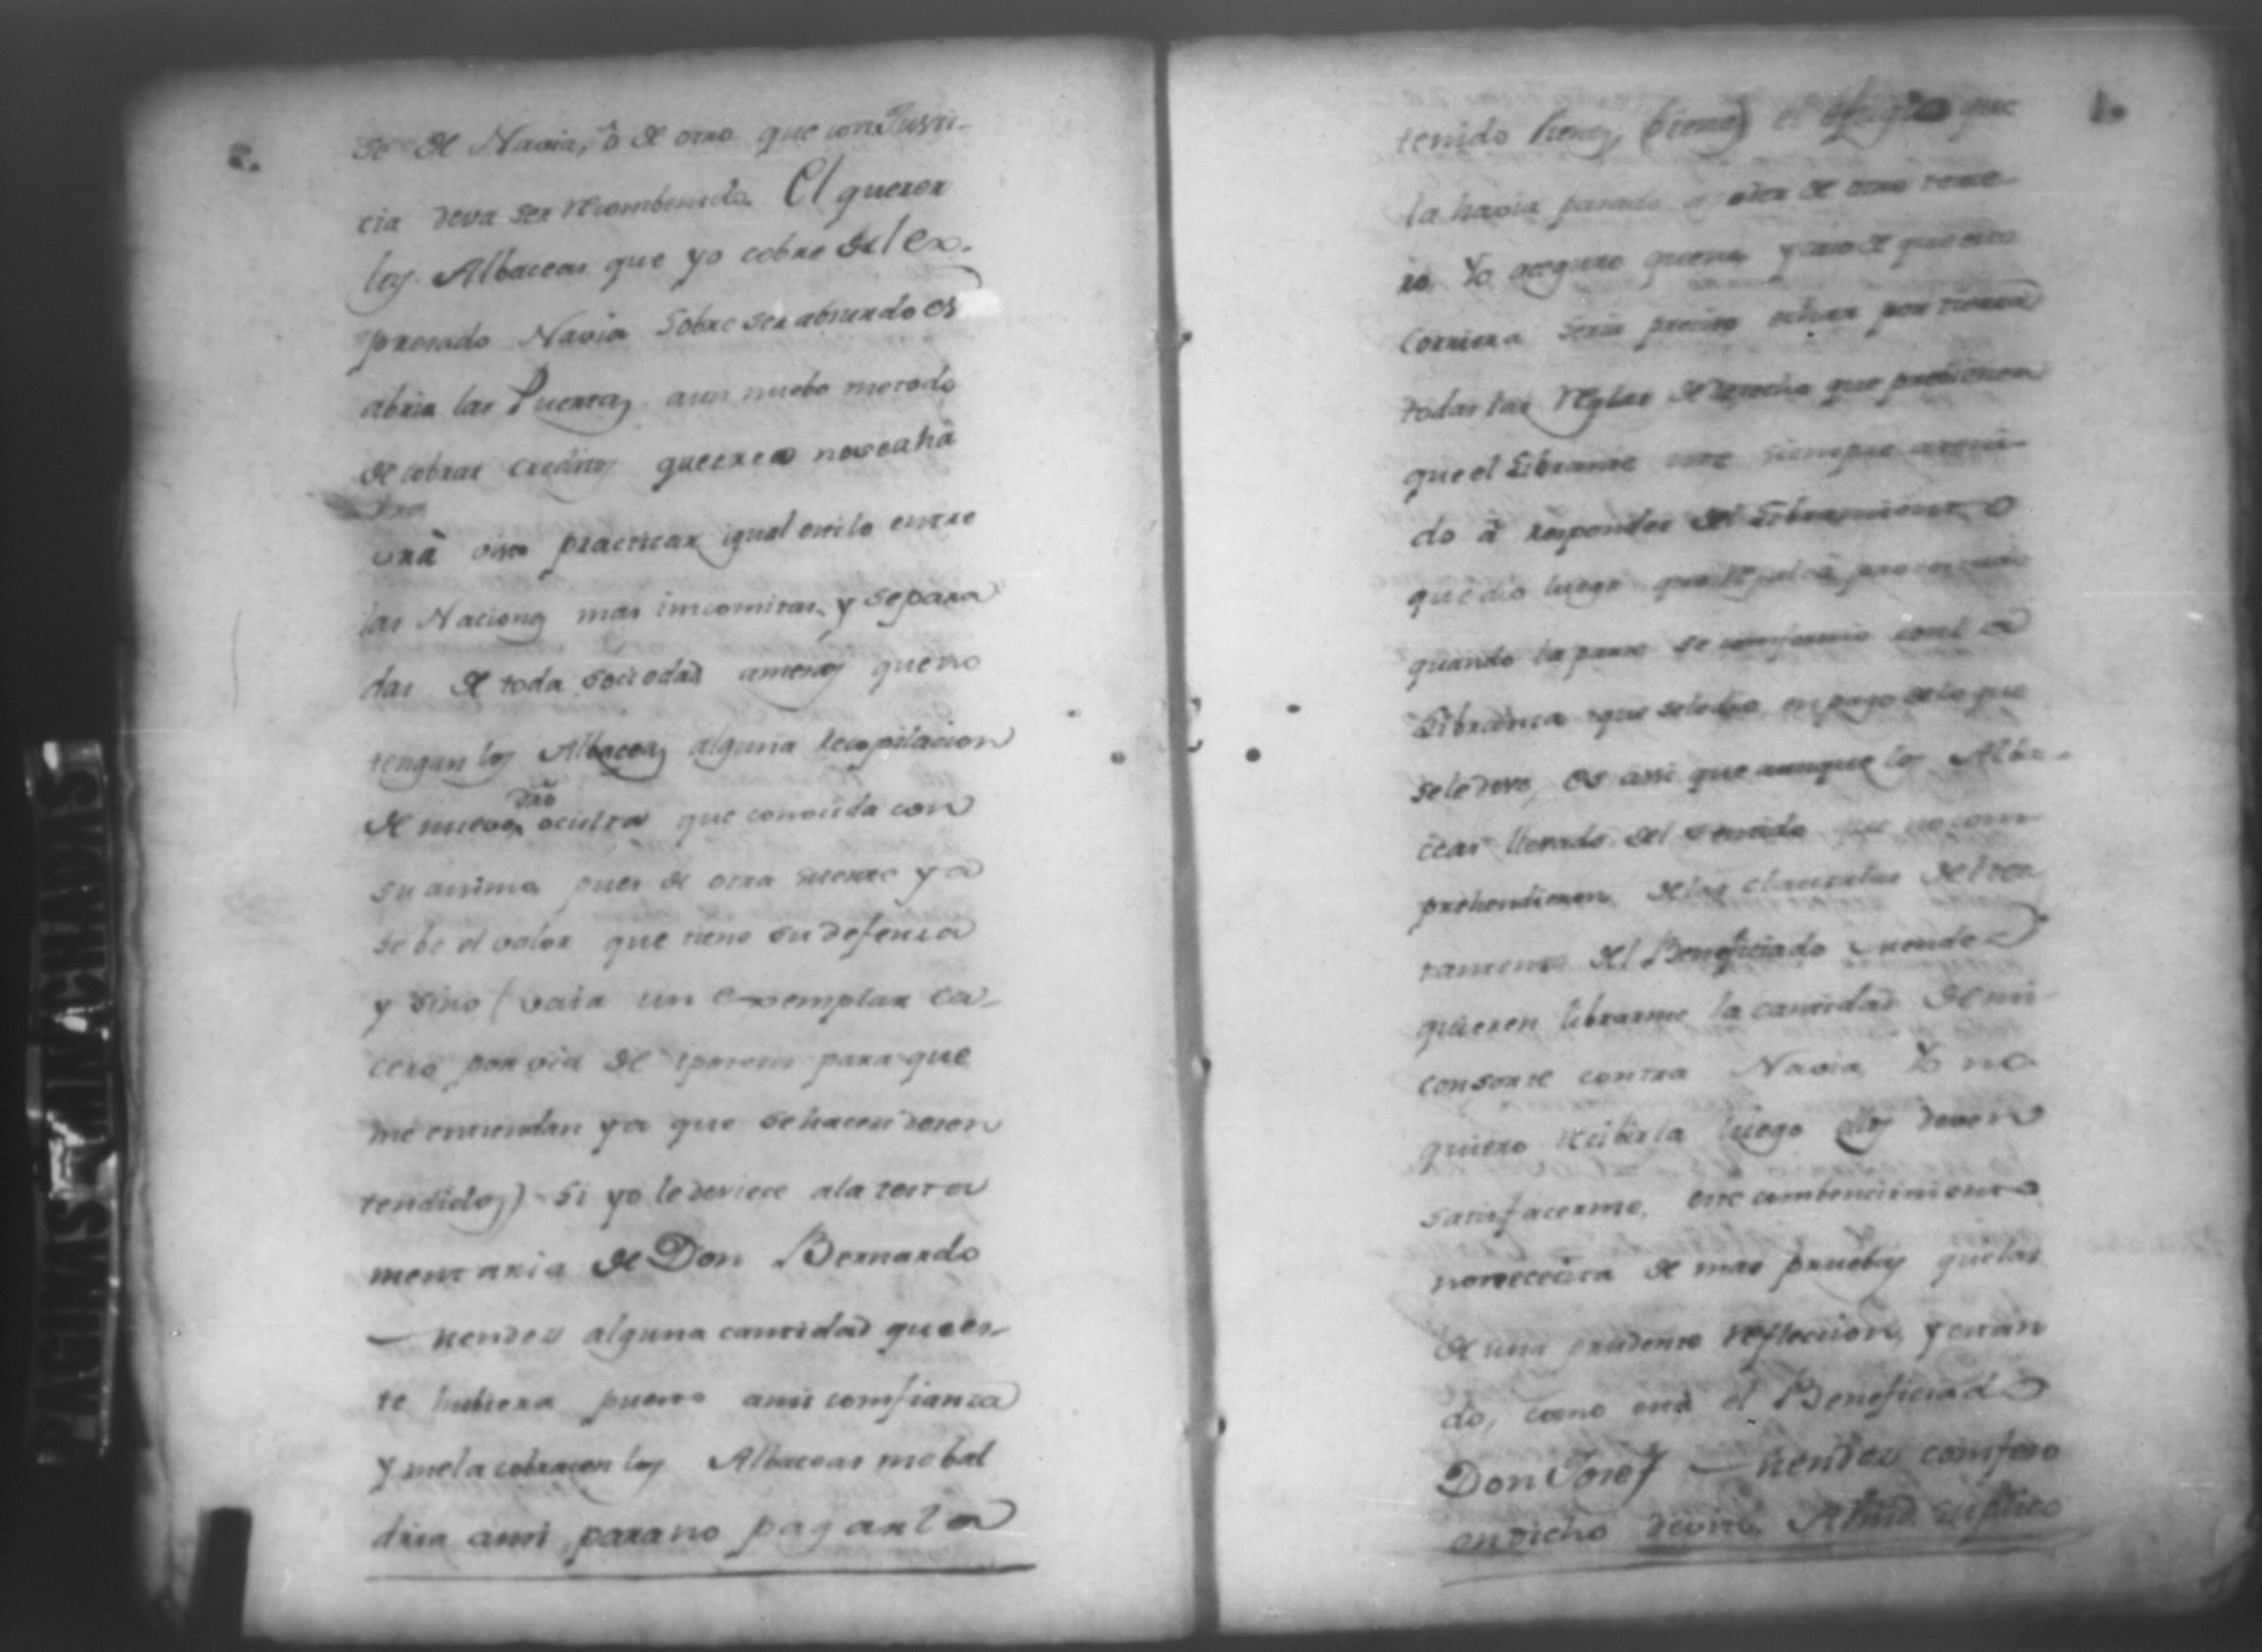 2.
se de Navia, ò de otro que con Justi-
cia deva ser recombenido. El querer
los Albaceas que yo cobre del ex-
presado Navia sobre ser absurdo es
abrir las Puertas aun nuebo metodo
de cobrar creditos que creo no se aha
ora visto practicar igual estilo entre
las Naciones mas incomitas, y separa
das de toda sociedad amenos que no
tengan los Albaceas alguna recopilacion
de nuevo dro oculta que conosida con
su animo, pues de otra suerte ya
se be el valor que tiene su defensa
y sino (vaia un exemplar ca-
cero por via de para que
me entiendan ya que se hacen desen
tendidos) si yo le deviece ala testa
mentaria de Don Bernardo
Mendes alguna cantidad que es-
te hubiera puesto ami comfianza
y mela cobracen los Albaceas me bal
dria ami para no pagarla
tenido bienes, (bienes) el que
la havia pasado a de otro
ro. Yo aseguro que
corriera seria preciso echar por tierra
todas las reglas de derecho que previenen
que el Librante este siempre atenido
do à responder del Libramiento
que dio luego que
quando la parte se comformò con la
Libranza que sele dio en pago delo que
sele deve, es assi que aunque los Alba-
ceas llevados del sentido que no com
prehendieron delas clausulas del tes
tamento del Beneficiado Mendes
quieren librarme la cantidad de mi
consorte contra Navia, Yo no
quiero recibirla luego ellos deven
satisfacerme, este combencimiento
nonececita de mas pruebas quelas
de una prudente refleccion, y estan
do, como està el Beneficiado
Don Josef Mendes comfeso
en dicho suplico